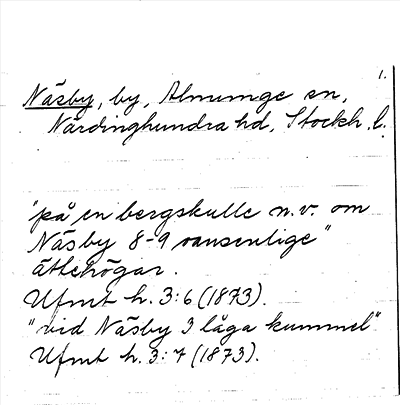 1.
Näsby, by, Almunge sn,
Närdinghundra hd, Stockh. l.
"på en bergskulle n.v. om
Näsby 8-9 oansenlige"
ättehögar.
Ufmt h. 3:6 (1873).
"vid Näsby 3 låga kummel"
Ufmt h. 3:7 (1873).